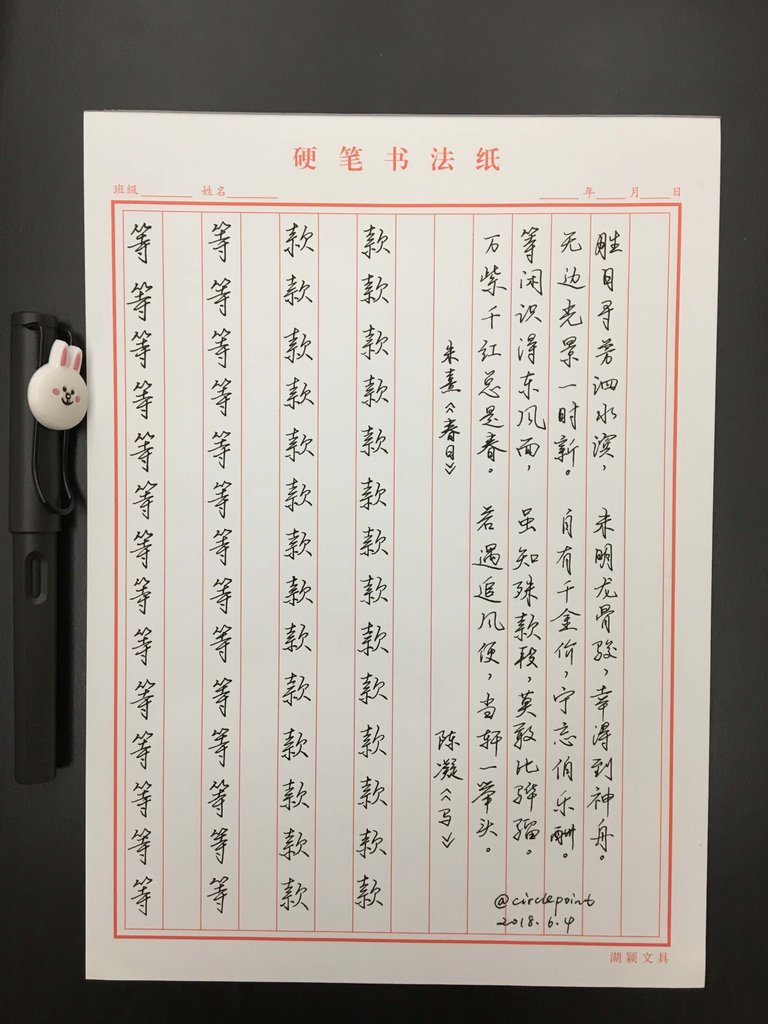 硬笔书法纸
班级 姓名 年 月 日
胜日寻芳泗水滨， 未明龙骨骏，幸得到神舟。
无边光景一时新。 自有千金价，宁忘伯乐酬。
等闲识得东风面， 虽知殊款段，莫敢比骅骝。
万紫千红总是春。 若遇追风便，当轩一举头。
朱熹《春日》 陈凝《马》
款款款款款款款款款款款款款款
款款款款款款款款款款款款款款
等等等等等等等等等等等等等等
等等等等等等等等等等等等等等
@circlepoint
2018.6.4
湖颖文具